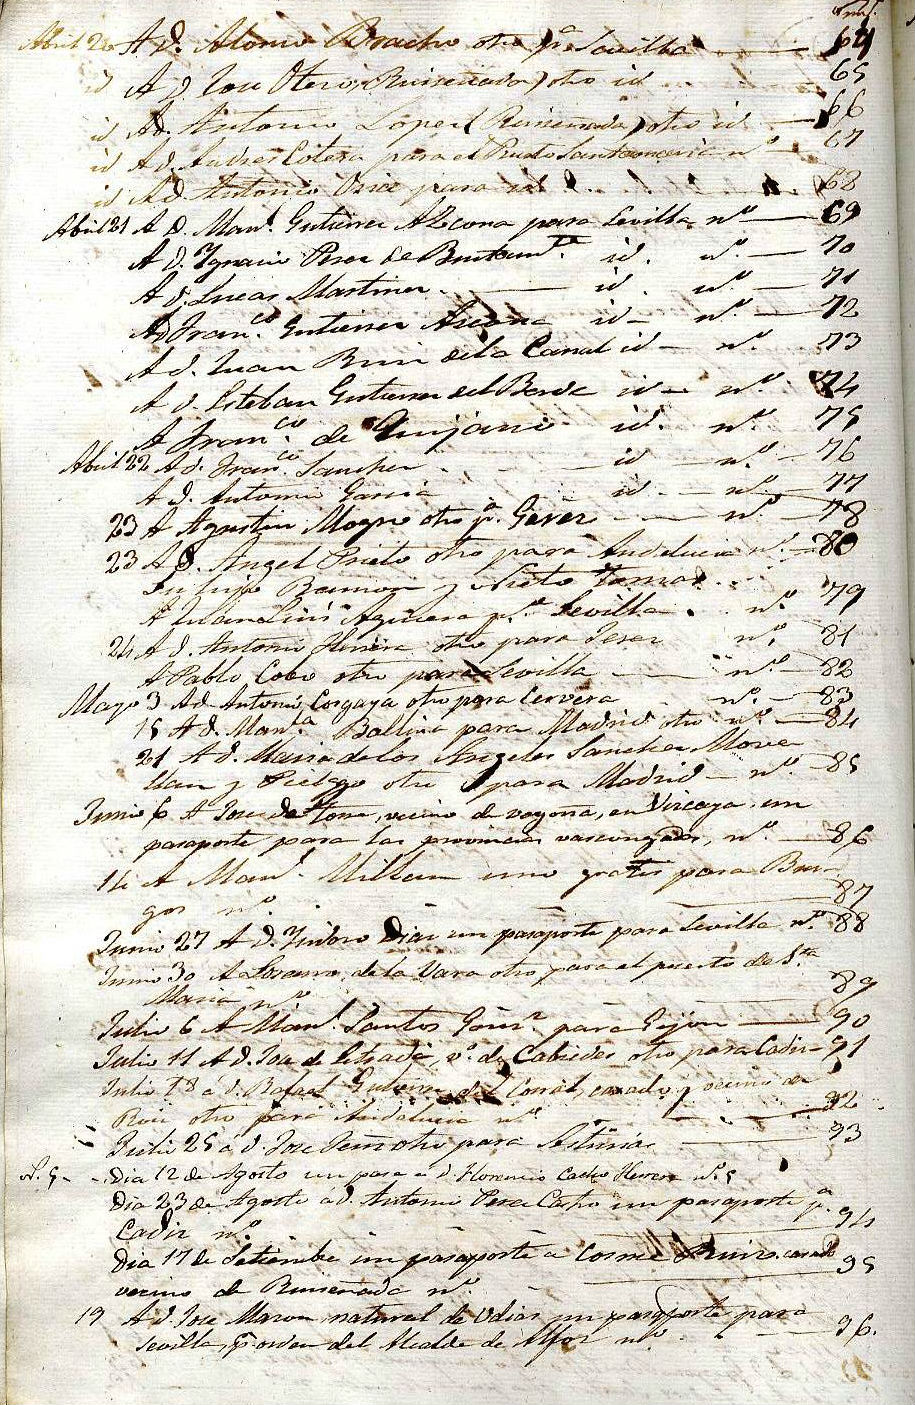 Abril 20 A D. Alonso Bracho otro pª Sevilla 64
id A D. Jose Otero (Ruiseñada) otro id 65
id A D. Antonio Lopez (Ruiseñada) otro id 66
id A D. Andres Cotera para el Puerto Santa Maria nº 67
id A D. Antonio para id 68
Abril 21 A D. Manl. Gutierrez Azcona para Sevilla nº 69
A D. Ygnacio Perez de Bustamte. id. nº. 70
A D. Lucas Martinez id. nº. 71
A D. Franco. Gutierrez Ascona id nº. 72
A D. Juan Ruiz de la Canal id nº. 73
A D. Esteban Gutierrez del Barda id nº. 74
A Franco. de Quijano id. nº. 75
Abril 22 A D. Franco. Sanchez id nº. 76
A D. Antonio Garcia id. nº. 77
23 A Agustin otro pª. Gerez nº 78
23 A D. Angel Prieto otro para Andalucia nº. 80
Su hijo Ramon y Nieto Tomas
A Julian Aguera pª. Sevilla nº. 79
24 A D. Antonio Herrera otro para Jerez nº. 81
A Pablo Cobo otro para Sevilla nº 82
Mayo 3 A D. Antonio Corgaya otro para Cervera nº. 83
15 A D. Manla. Ballina para Madrid otro nº 84
21 A D. Maria de los Angeles Sanchez Move
llan y Pielago otro para Madrid nº. 85
Junio 6 A Jose de Torre, vecino de vayona, en Vizcaya, un
pasaporte para las provincias vascongadas, nº. 86
14 A Manl. Millan uno gratis para Bur
gos nº. 87
Junio 27 A D. Ysidoro Diaz un pasaporte para Sevilla nº. 88
Junio 30 A Lazaro de la Vara otro para el puerto de Sta
Maria nº. 89
Julio 6 A Manl. Santos Gonz. para Gijon 90
Julio 11 A D. Joa de Estrada, vº. de Cabiedes otro para Cadiz 91
Julio 18 a D. Rafael Gutierrez del Corral, casado y vecino de
Ruiz otro para Andalucia nº. 92
Julio 25 a D. Jose otro para Asturias 93
N. 5 Dia 12 de Agosto un pase a D. Florencio Castro Herrera nº. 5
Dia 23 de Agosto a D. Antonio Perez Castro un pasaporte pª
Cadiz nº. 94
Dia 17 de Setiembre un pasaporte a Cosme Ruiz casado
vecino de Ruiseñada nº. 95
19 A D. Jose Maron natural de Udias un pasaporte para
Sevilla, pr orden del Alcalde de Alfoz nº. 96.